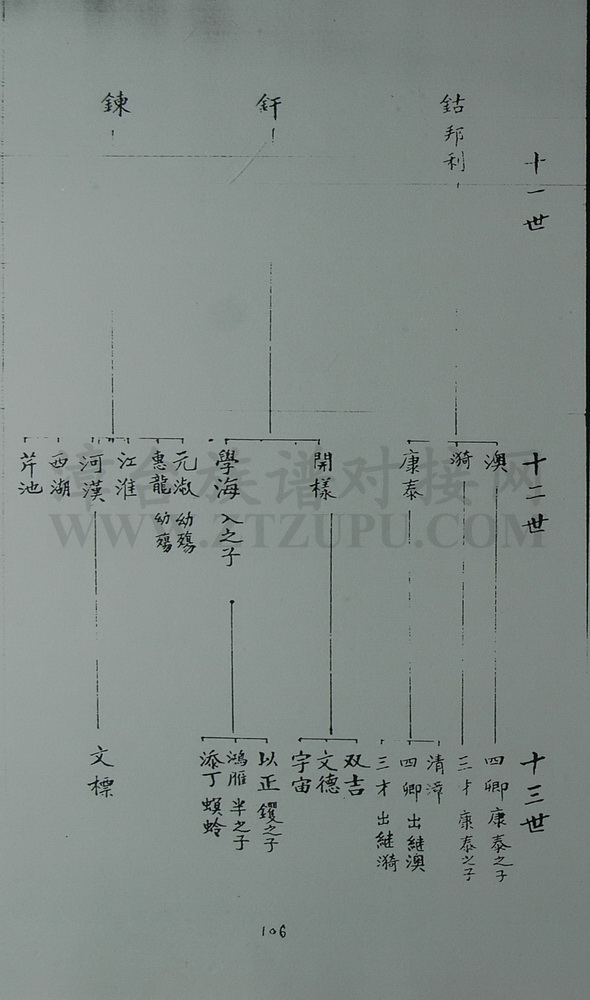 十一世
鈷邦利
釬
鍊
十二世
澳
漪
康泰
開樣
學海 入之子
元淑 幼殤
惠龍 幼殤
江淮
河漢
西湖
芹池
十三世
四卿 康泰之子
三才 康泰之子
清漳
四卿 出継澳
三才 出継漪
双吉
文德
宇宙
以正 鑊之子
鴻雁 半之子
添丁 螟蛉
文標
106
漳台族谱对接网
WWW.ZTZUPU.COM